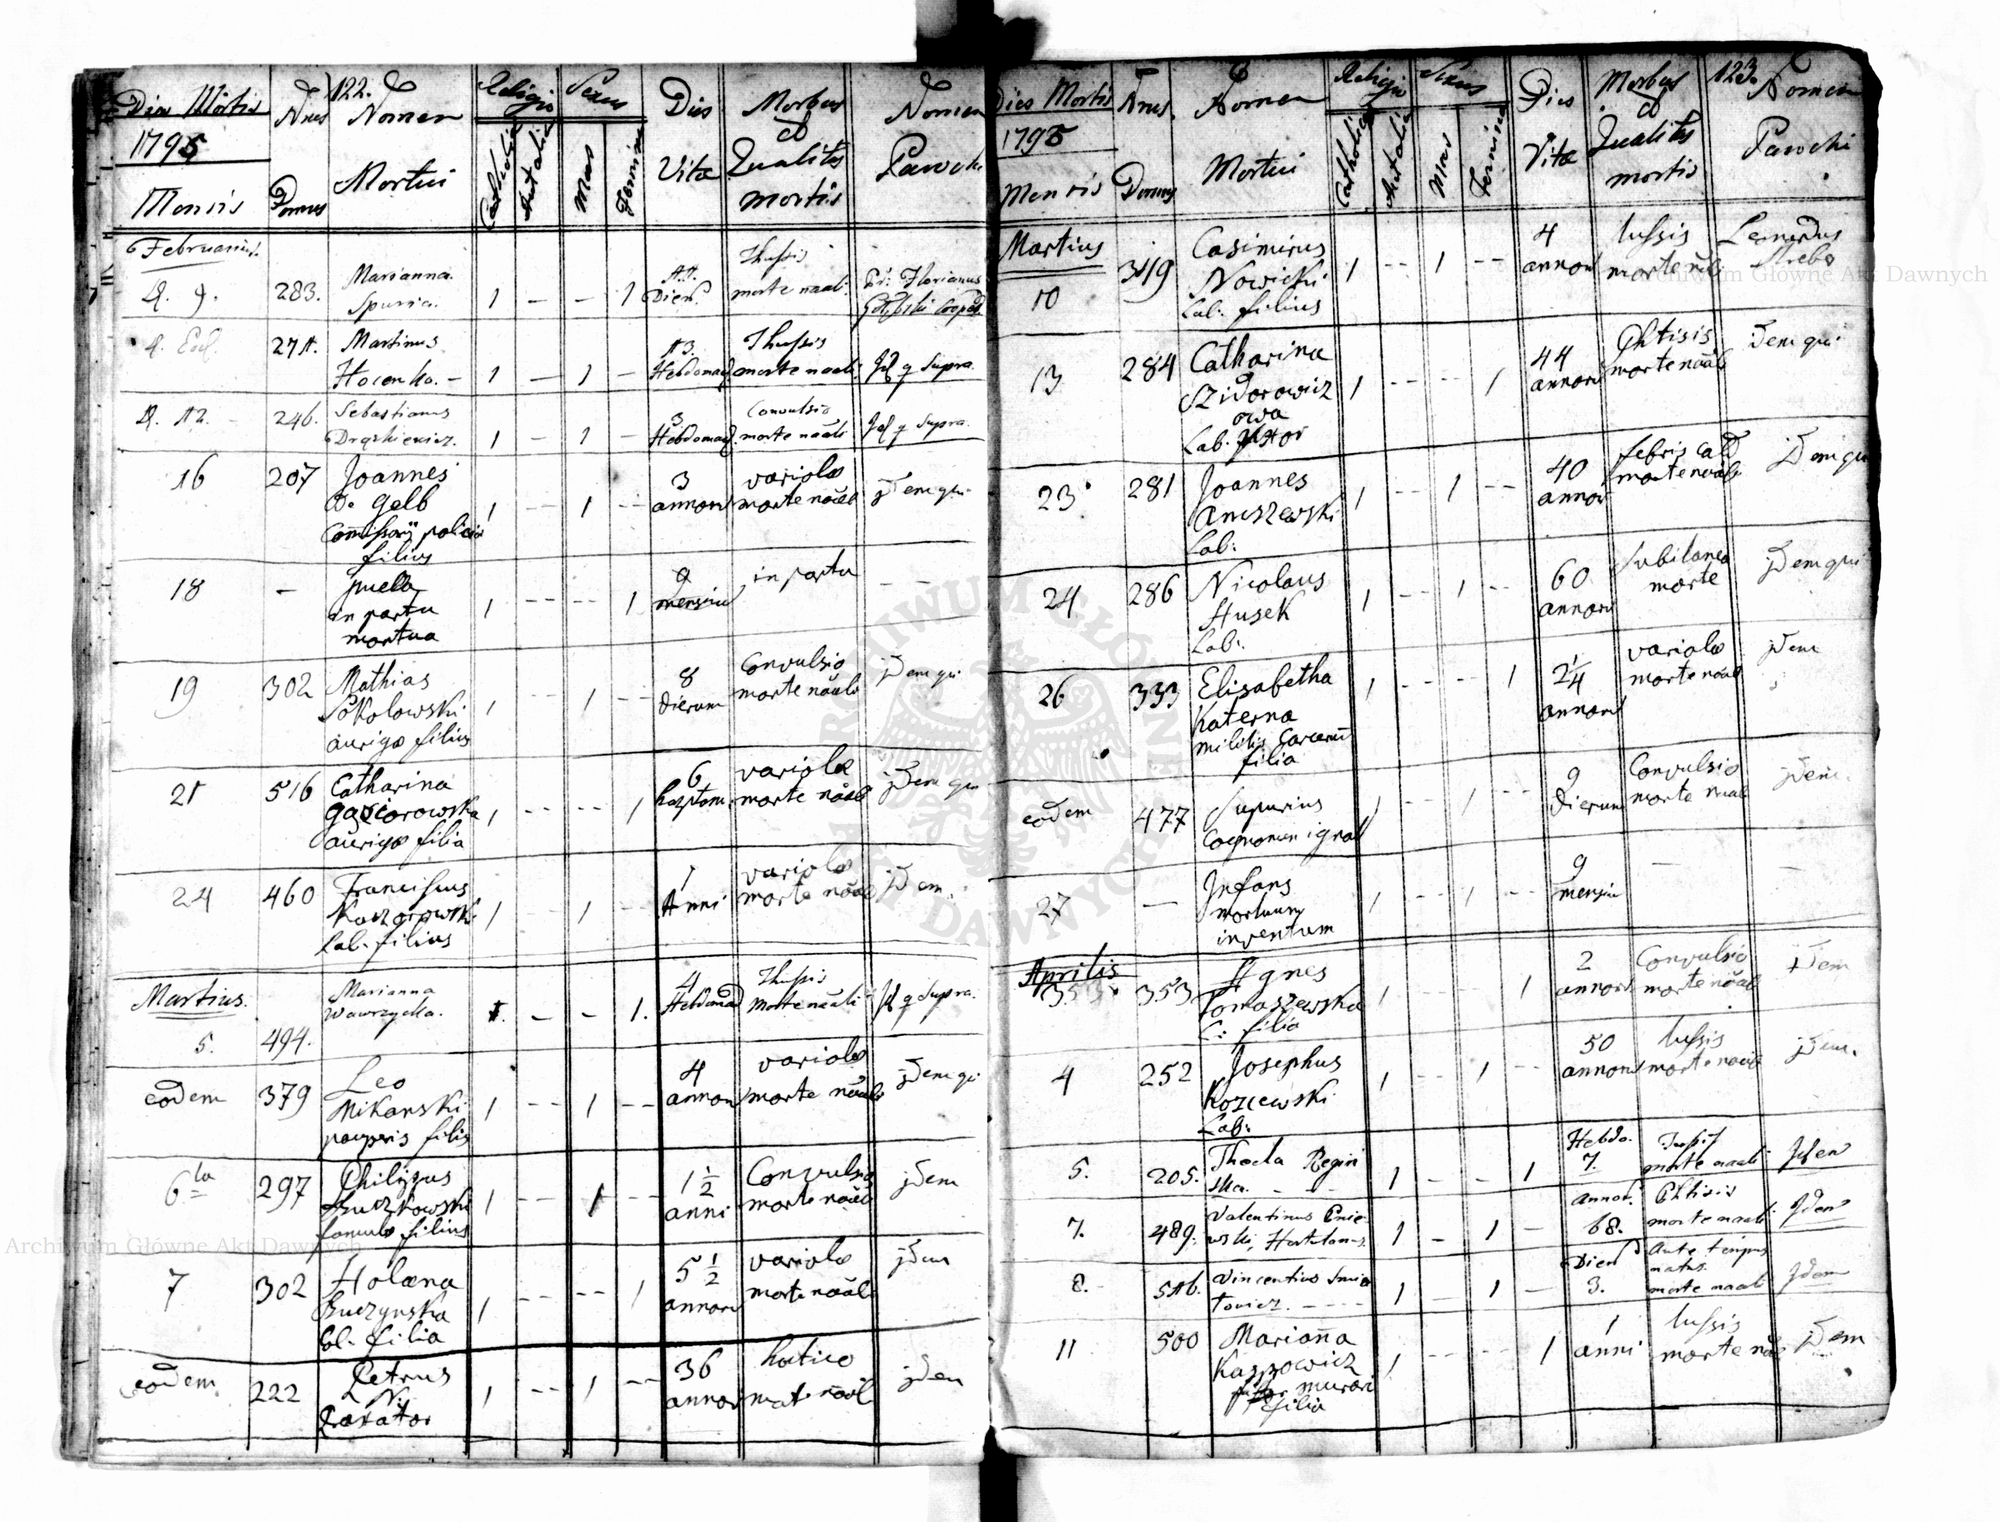 122.
Dies Mortis
1795
Mensis
Nrus
Domus
Nomen
Mortui
Religio
Catholica
Autalia
Sexus
Mas
Femina
Dies
Vitæ
Morbus
et
Qualitas
mortis
Nomen
Parochi
Februarius
d. 9.
283.
Marianna
Spuria.
1 — — 1
11.
Dier.
Thussis
morte naāli.
Pr. Florianus
Coop.
d. Eod.
271.
Martinus
Hocenka. —
1 — 1 —
13.
Hebdomad.
Thussis
morte naali.
Id q Supra.
d. 12.
246.
Sebastianus
Drąskiewicz.
1 — 1 —
3
Hebdomad.
Convulsio
morte naāli
Id q Supra.
16
207
Joannes
De Gelb
Com̄issarij policiæ
filius
1 -- 1 --
3
annorū
variolæ
morte nāali
jdem qui
18
—
puella
in partu
mortua
1 -- -- 1
9
mensiū
in partu
— —
19
302
Mathias
Sokolowski
aurigæ filius
1 -- 1 --
8
dierum
Convulsio
morte nāali
jdem qui
21
516
Catharina
Gąsiorowska
aurigæ filia
1 -- -- 1
6
heptom.
variolæ
morte nāali
jdem qui
24
460
Franciscus
Kaczorowski
Lab. filius
1 -- 1 --
1
Anni
variolæ
morte nāali
jdem.
Martius.
5.
494.
Marianna
Wawrzycka.
1. — — 1.
4
Hebdomad
Thussis
Morte nāali
Id q Supra.
eodem
379
Leo
Mikanski
pauperis filius
1 -- 1 --
4
annorū
variolæ
morte nāali
jdem qui
6ta
297
Philippus
Buczkowski
famulæ filius
1 -- 1 --
1 1/2
anni
Convulsio
morte nāali
jdem
7
302
Holæna
Buczynska
lab. filia
1 -- -- 1
5 1/2
annorū
variolæ
morte nāali
jdem
eodem
222
Petrus
N:
1 -- 1 --
36
annorū
hetica
mort nāali
jdem
123.
Dies Mortis
1795
Mensis
Nrus.
Domus
Nomen
Mortui
Religio
Catholica
Autalia
Sexus
Mas
Femina
Dies
Vitæ
Morbus
et
Qualitas
mortis
Nomen
Parochi
Martius
10
349
Casimirus
Nowicki
Lab. filius
1 -- 1 --
4
annorū
tussis
morte nāali
Leonardus
13
284
Catharina
Szidorowicz
owa
Lab. uxor
1 -- -- 1
44
annorū
Phtisis
morte nāali
Jdem qui
23
281
Joannes
Aniszewski
Lab:
1 -- 1 --
40
annorū
febris cald
morte nāali
Jdem qui
24
286
Nicolaus
Husek
Lab:
1 -- 1 --
60
annorū
Subitanea
morte
jdem qui
26
333
Elisabetha
Katerna
militis
filia
1 -- -- 1
2 1/4
annorū
variolæ
morte nāali
jdem
eodem
477
Supurius
Cognomen ignot
1 -- 1 --
9
dierum
Convulsio
morte naali
jdem.
27
—
Infans
mortuum
inventum
1 -- 1 --
9
mensiū
—
—
Aprilis
353
353
Agnes
Tomaszewska
L: filia
1 -- -- 1
2
annorū
Convulsio
morte nāali
jdem
4
252
Josephus
Koziewski
Lab:
1 -- 1 --
50
annorū
tussis
morte naali
jdem.
5.
205.
Thecla Regin
ska. — —
1 — — 1
Hebdo.
7.
Tussis
morte naali
Jdem
7.
489.
Valentinus Pnie-
wski, Hortulanus.
1 — 1 —
Annor.
68.
Phtisis
morte naali.
Jdem
8.
516.
Vincentius Smia
towicz. — — —
1 — 1 —
Dier
3.
Ante tempus
natus.
morte naali
Jdem
11
500
Marian̄a
Kaspowicz
murari
filia
1 -- -- 1
1
anni
tussis
morte nāa
jdem
Archiwum Główne Akt Dawnych
Archiwum Główne Akt Dawnych
ARCHIWUM GŁÓWNE
AKT DAWNYCH